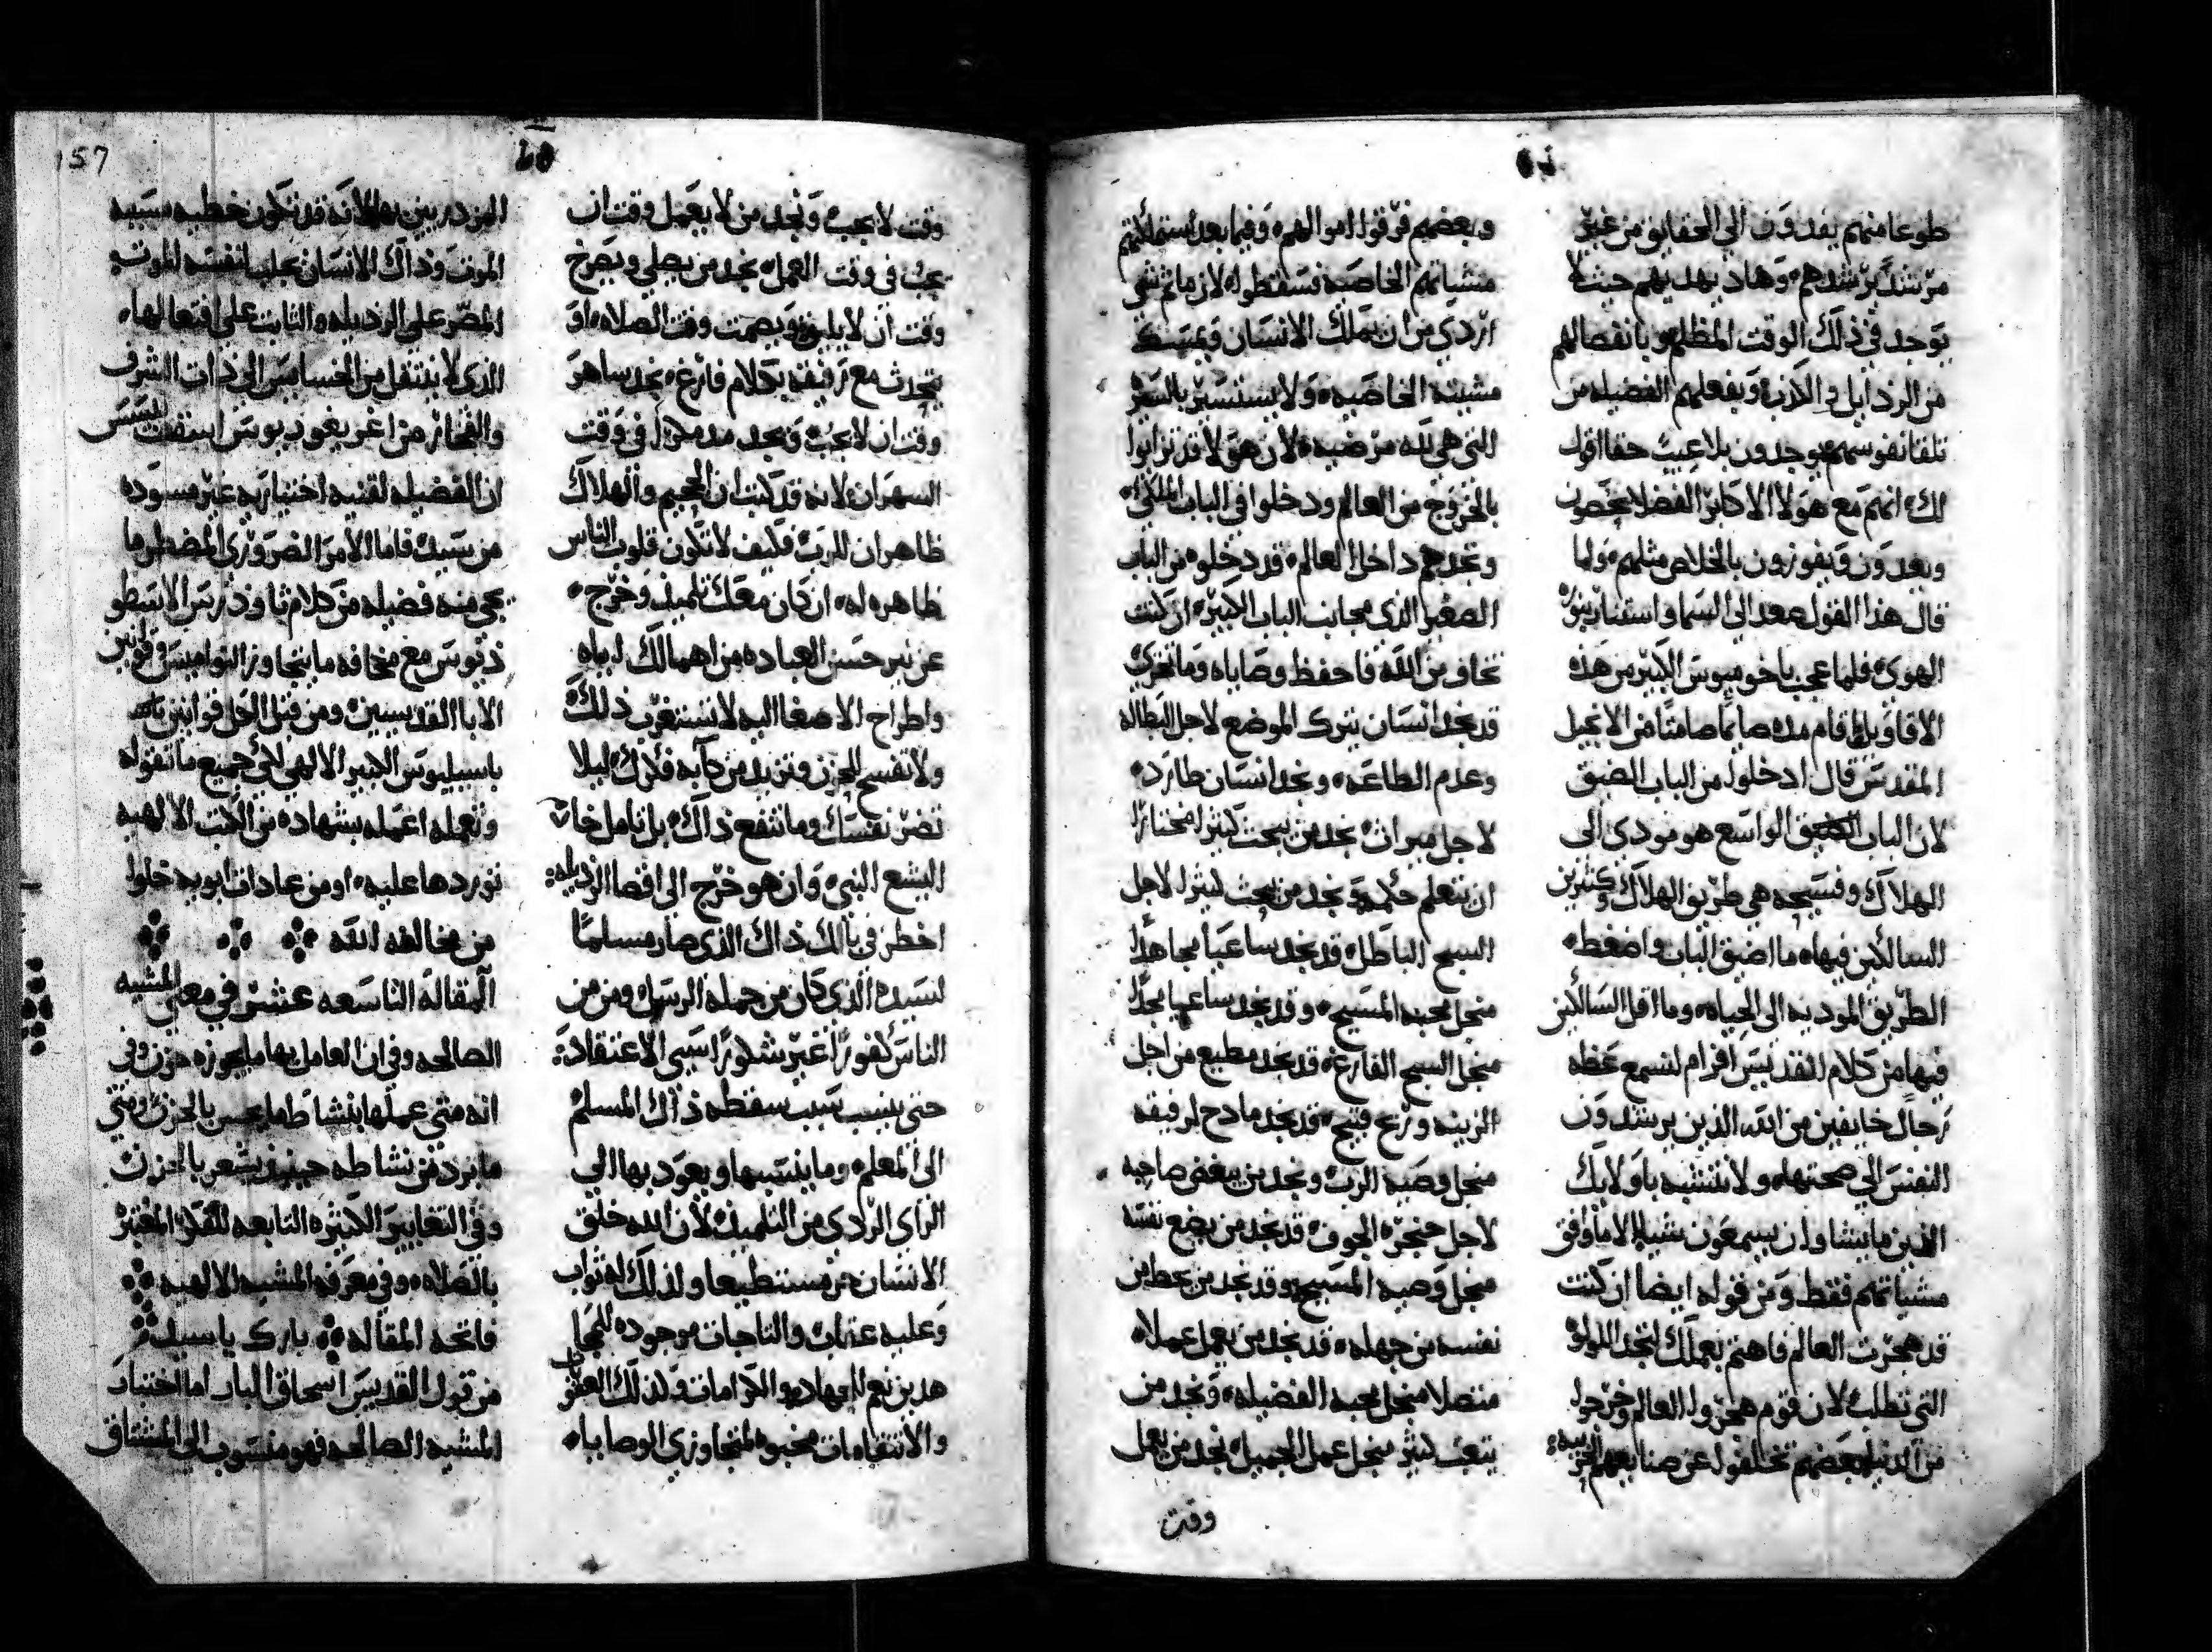 طوعا منهم يفدون الى الحقايق من غير
مرشد يرشدهم وهاد يهديهم حيث لا
توجد في ذلك الوقت المظلم وبانفصالهم
من الردايل والكذب وبفعلهم الفضيله من
تلقا نفوسهم يوجدون بلا عيب حقا اقول
لك انهم مع هولا الاكابر الفضلا يحصون
ويعدون ويفوزون بالخلاص مثلهم ولما
قال هذا القول صعد الى السما واستنار بنوره
الهوى فلما عجب باخوميوس الكبير من هذه
الاقاويل اقام مده صايما صامتا من الانجيل
المقدس قال ادخلوا من الباب الضيق
لان الباب الواسع هو مودي الى
الهلاك وفسيحه هي طريق الهلاك وكثيرين
السالكين فيها ما اضيق الباب واضغط
الطريق المودية الى الحياه وما اقل السالكين
فيها من كلام القديس افرام لنسمع عظه
رجال خايفين من الله الذين يرشدون
النفس الى صحتها ولا نتشبه باولايك
الذين ما يشاوا ان يسمعون شيا الا ما وافق
مشياتهم فقط ومن قوله ايضا ان كنت
قد هجرت العالم فاهتم بعملك لتجد اللولو
التي تطلب لان قوم هجروا العالم وخرجوا
من الدنيا بعضهم تخلفوا عن صنايعهم الحربيه
وبعضهم فرقوا اموالهم وفيما بعد استملكتهم
مشياتهم الخاصه فسقطوا لان ما ثم شي
اردي من ان يملك الانسان ويمسك
مشيته الخاصيه ولا يستسير بالسير
التي هي لله مرضيه لان هولا قد تزايوا
بالخروج من العالم ودخلوا في الباب الملكي
وتجدهم داخل العالم قد دخلوه من الباب
الصغير الذي بجانب الباب الكبير ان كنت
تخاف من الله فاحفظ وصاياه وما تخزي
قد نجد انسان يترك الموضع لاجل البطاله
وعدم الطاعه ونجد انسان طارد
لاجل ميراث نجد من يبحث كثيرا مختارا
ان يتعلم حكمه ونجد من يبحث كثيرا لاجل
السبح الباطل قد نجد ساعيا مجاهدا
منجل محبه المسيح وقد نجد ساعيا مجدا
منجل السبح الفارغ قد نجد مطيع من اجل
الزينه وربح قبيح قد نجد مادح لرفيقه
منجل وصيه الرب ونجد من يبغض صاحبه
لاجل حنجره الجوف قد نجد من يضع نفسه
منجل وصيه المسيح وقد نجد من يحط من
نفسه من جهله قد نجد من يعمل عملا
متصلا منجل محبه الفضيله ونجد من
يتعب كثير منجل عمل الجميل نجد من يعمل
وقت
157
وقت لا يجب ونجد من لا يعمل وقت ان
يجب في وقت العمل نجد من يصلي ويصرخ
وقت ان لا يليق ويصمت وقت الصلاه او
يتحدث مع رفيقه بكلام فارغ نجد ساهر
وقت ان لا يجب ونجد مدمدم في وقت
السهران لانه قد كتب ان الجحيم والهلاك
ظاهران للرب فكيف لا تكون قلوب الناس
ظاهره له ان كان معك تلميذ وخرج
عن نير حسن العباده من اهمالك اياه
واطراح الاصغا اليه لا تستغرب ذلك
ولا تفسح للحزن وتزيد من كآبه فكرك ليلا
تضر نفسك وما تنفع ذاك بل تامل خا
اليشع النبي وان هو خرج الى اقصا الرذيله
اخطر في بالك ذاك الذي صار مسلما
لسيده الذي كان من جمله الرسل ومن من
الناس كفورا غير شكورا سيي الاعتقاد
حتى ينسب سبب سقطه ذاك المسلم
الى المعلم وما ينسبها ويعود بها الى
الراى الردي من التلميذ لان الله خلق
الانسان حر مستطيعا ولذلك له ثواب
وعليه عقاب والتاجات موجوده للمجا
هدين نعم للجهاد والكرامات ولذلك العقو
والانتقامات مخبوه لمتجاوزي الوصايا
المزدريين بها لانه قد تكون خطيه مسببه
الموت وذاك الانسان يجلب لنفسه الموت
المصر على الرذيله والثابت على افتعالها
الذي لا ينتقل من الخسايس الى ذات الشرف
ان الفضيله لقنيه اختياريه غير مسوده
من سيد فاما الامر الضروري المضطر ما
يجي منه فضيله من كلام ثاودرس الاسطو
ذيوس مع مخافه ما يتجاوز النواميس وقوانين
الابا القديسين ومن قبل الكل قوانين
باسيليوس الكبير الالهي لكي جميع ما تقوله
وتعمله اعمله بشهاده من الكتب الالهيه
توردها عليه او من عادات ابويه خلوا
من مخالفه الله
المقاله التاسعه عشر في معنى المشيه
الصالحه وفي ان العامل بها ما يحوزه حزن وفي
انه متى عملها بنشاط ما يحس بالحزن ومتى
ما برد من نشاطه حينيذ يشعر بالحزن
وفي التغايير الكثيره التابعه للفكر المغتر
بالصلاه وفي معرفه المشيه الالهيه
فاتحه المقاله بارك يا سيد
من قول القديس اسحاق البار اما اختبار
المشيه الصالحه فهو منسوب الى المشتاق